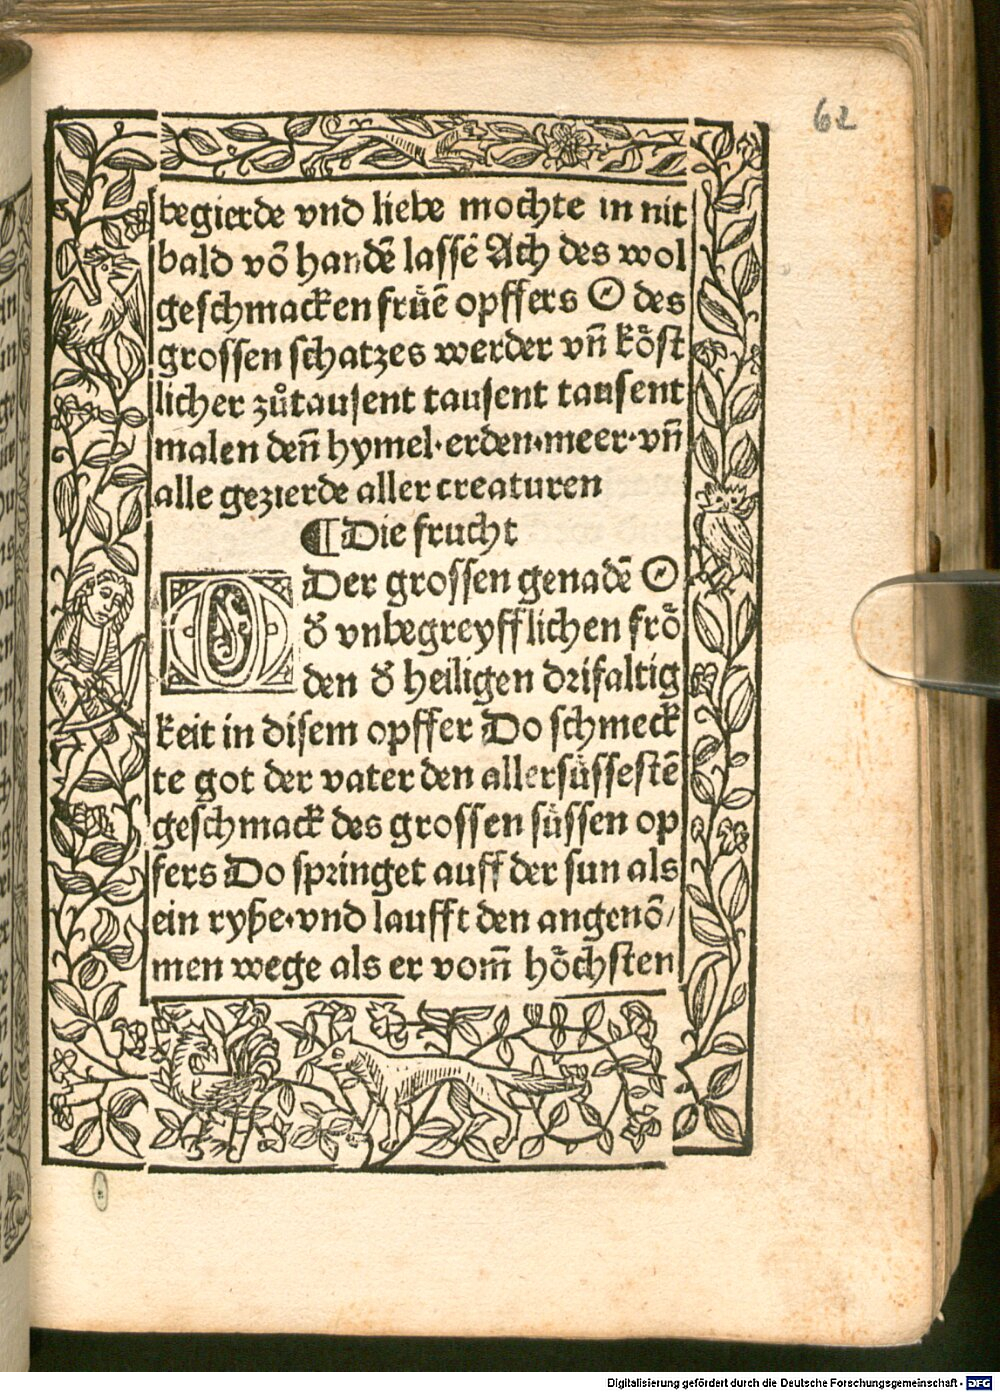 62
begierde vnd liebe mochte in nit
bald võ handẽ lassẽ Ach des wol
geschmacken früẽ opffers O des
grossen schatzes werder vñ köst
licher zůtausent tausent tausent
malen deñ hymel·erden·meer·vñ
alle gezierde aller creaturen
¶Die frucht
O Der grossen genadẽ O
d' vnbegreyfflichen frö
den d' heiligen drifaltig
keit in disem opffer Do schmeck
te got der vater den allersüssestẽ
geschmack des grossen süssen op
fers Do springet auff der sun als
ein ryße·vnd laufft den angenõ/
men wege als er vom̃ höchsten
Digitalisierung gefördert durch die Deutsche Forschungsgemeinschaft - DFG